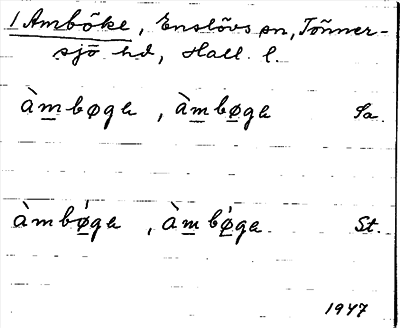 1 Amböke, Enslövs sn, Tönner-
sjö hd, Hall. l.
àmbøgə, àmbøgə Sa.
àmbǿgə, àmbǿgə. St.
1947